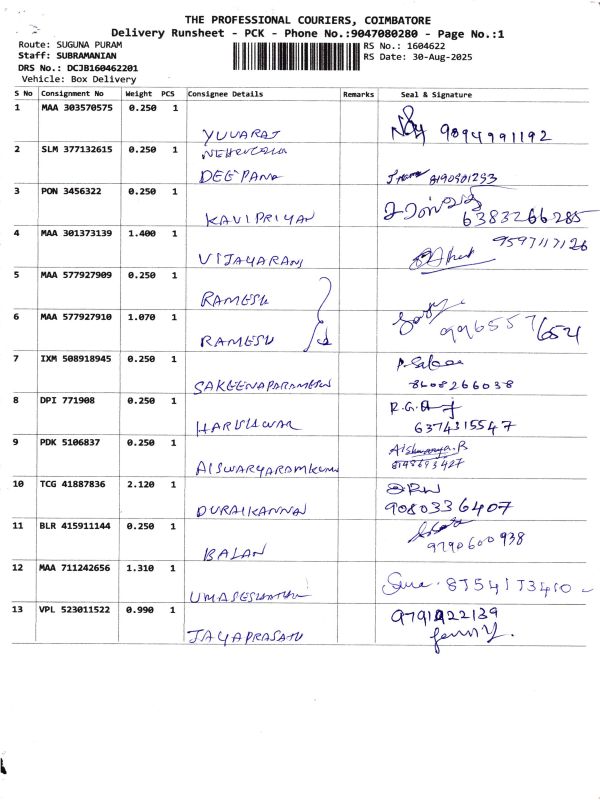 THE PROFESSIONAL COURIERS, COIMBATORE
Delivery Runsheet - PCK - Phone No.:9047080280 - Page No.:1
Route: SUGUNA PURAM RS No.: 1604622
Staff: SUBRAMANIAN RS Date: 30-Aug-2025
DRS No.: DCJB160462201
Vehicle: Box Delivery
S No Consignment No Weight PCS Consignee Details Remarks Seal & Signature
1 MAA 303570575 0.250 1
YUVARAJ 9894991192
2 SLM 377132615 0.250 1
DEEPANA 8190901293
3 PON 3456322 0.250 1
KAVIPRIYAN 6383266285
4 MAA 301373139 1.400 1 9597117126
VIJAYARANI
5 MAA 577927909 0.250 1
RAMESH
6 MAA 577927910 1.070 1
RAMESH 9965557654
7 IXM 508918945 0.250 1
8608266038
8 DPI 771908 0.250 1 R.G.
6374315547
9 PDK 5106837 0.250 1 Aishwarya.R
8148693427
10 TCG 41887836 2.120 1
DURAIKANNAN 9080336407
11 BLR 415911144 0.250 1
BALAN 9790600938
12 MAA 711242656 1.310 1
8754173410
13 VPL 523011522 0.990 1 9791922139
JAYAPRASATH